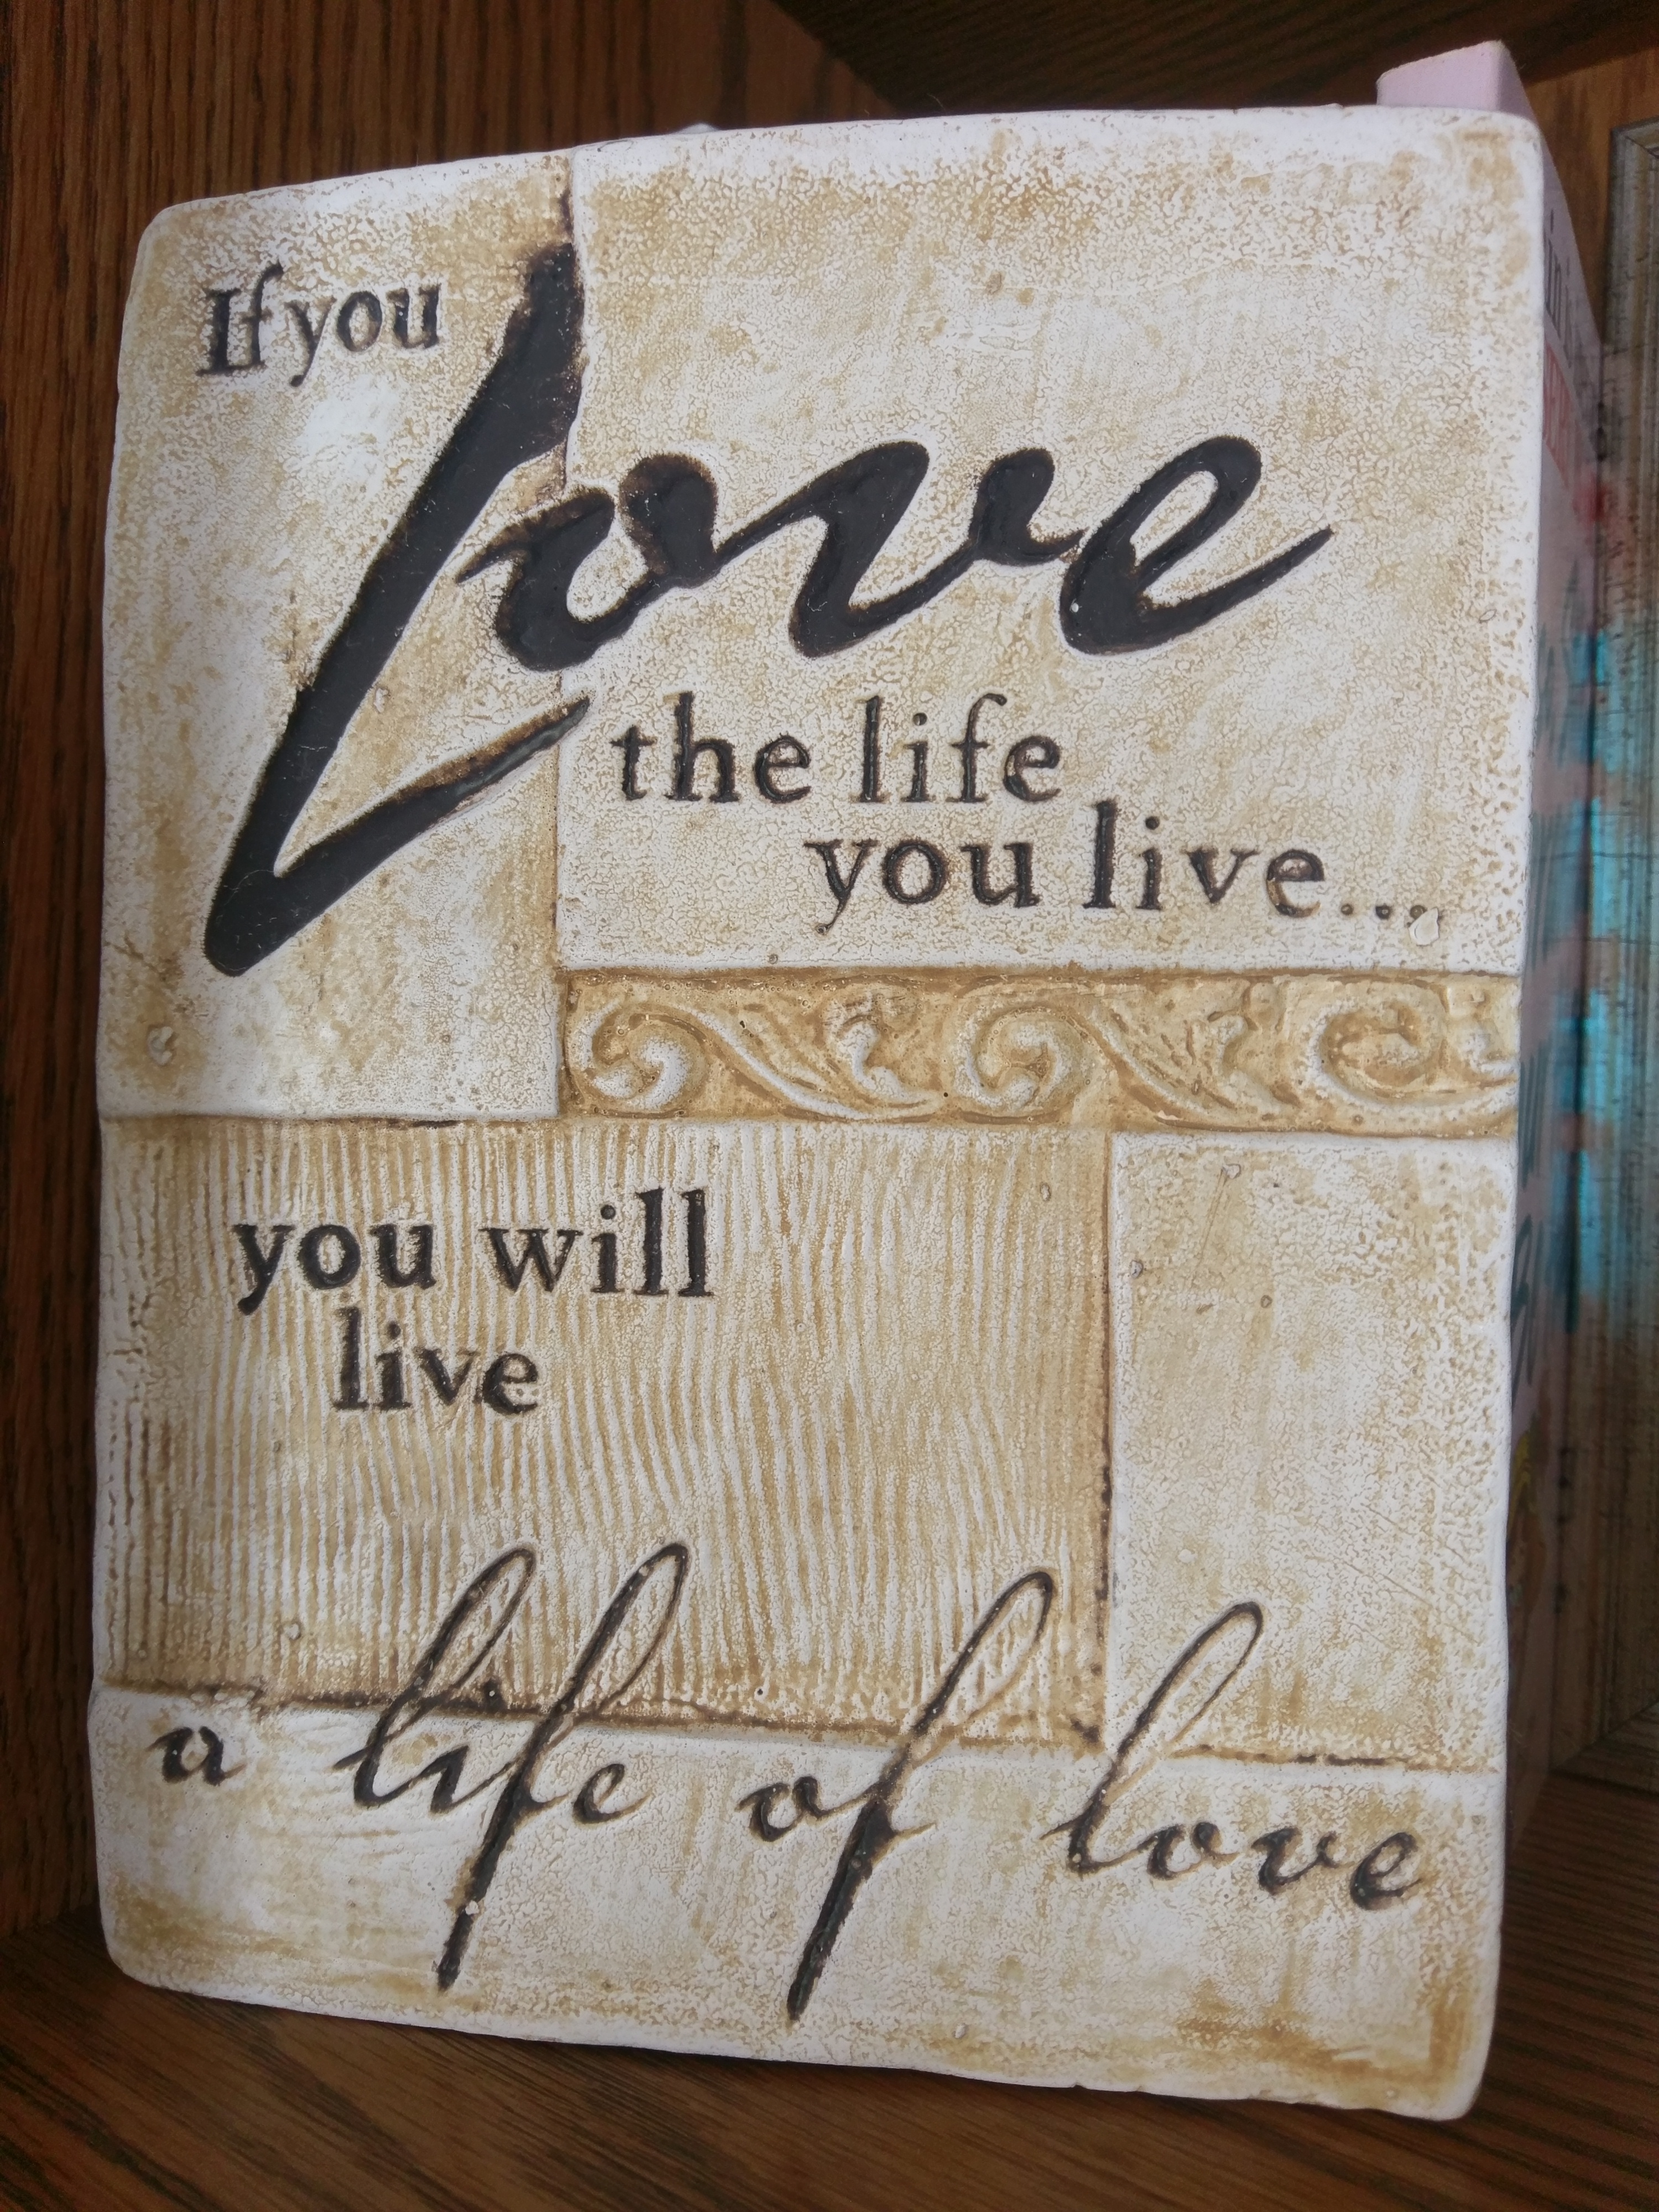 If you
Love
the life
you live...
you will
live
a life of love